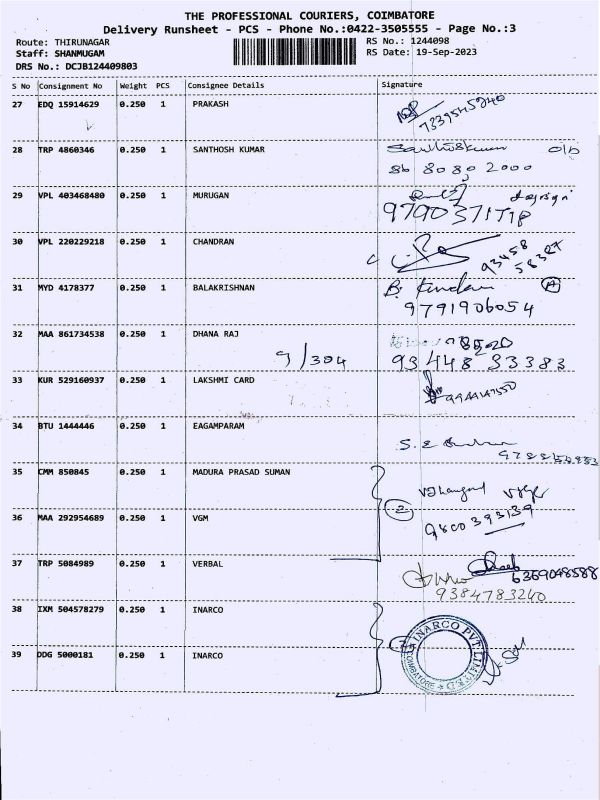 THE PROFESSIONAL COURIERS, COIMBATORE
Delivery Runsheet - PCS - Phone No.:0422-3505555 - Page No.:3
Route: THIRUNAGAR RS No.: 1244098
Staff: SHANMUGAM RS Date: 19-Sep-2023
DRS No.: DCJB124409803
S No Consignment No Weight PCS Consignee Details Signature
27 EDQ 15914629 0.250 1 PRAKASH
7339545240
28 TRP 4860346 0.250 1 SANTHOSH KUMAR
86 80802000
29 VPL 403468480 0.250 1 MURUGAN
30 VPL 220229218 0.250 1 CHANDRAN
93458
58327
31 MYD 4178377 0.250 1 BALAKRISHNAN
9791906054
32 MAA 861734538 0.250 1 DHANA RAJ
9/304 93 448 33383
33 KUR 529160937 0.250 1 LAKSHMI CARD
9944147550
34 BTU 1444446 0.250 1 EAGAMPARAM
35 CMM 850845 0.250 1 MADURA PRASAD SUMAN
2
36 MAA 292954689 0.250 1 VGM
9800393139
37 TRP 5084989 0.250 1 VERBAL
6369048588
9384783240
38 IXM 504578279 0.250 1 INARCO
INARCO PVT LIMITED
COIMBATORE
39 DDG 5000181 0.250 1 INARCO